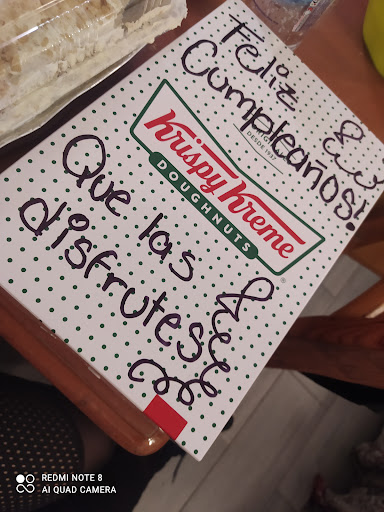 Feliz
Cumpleaños!
Krispy Kreme
DOUGHNUTS
Que las
disfrutes
REDMI NOTE 8
AI QUAD CAMERA